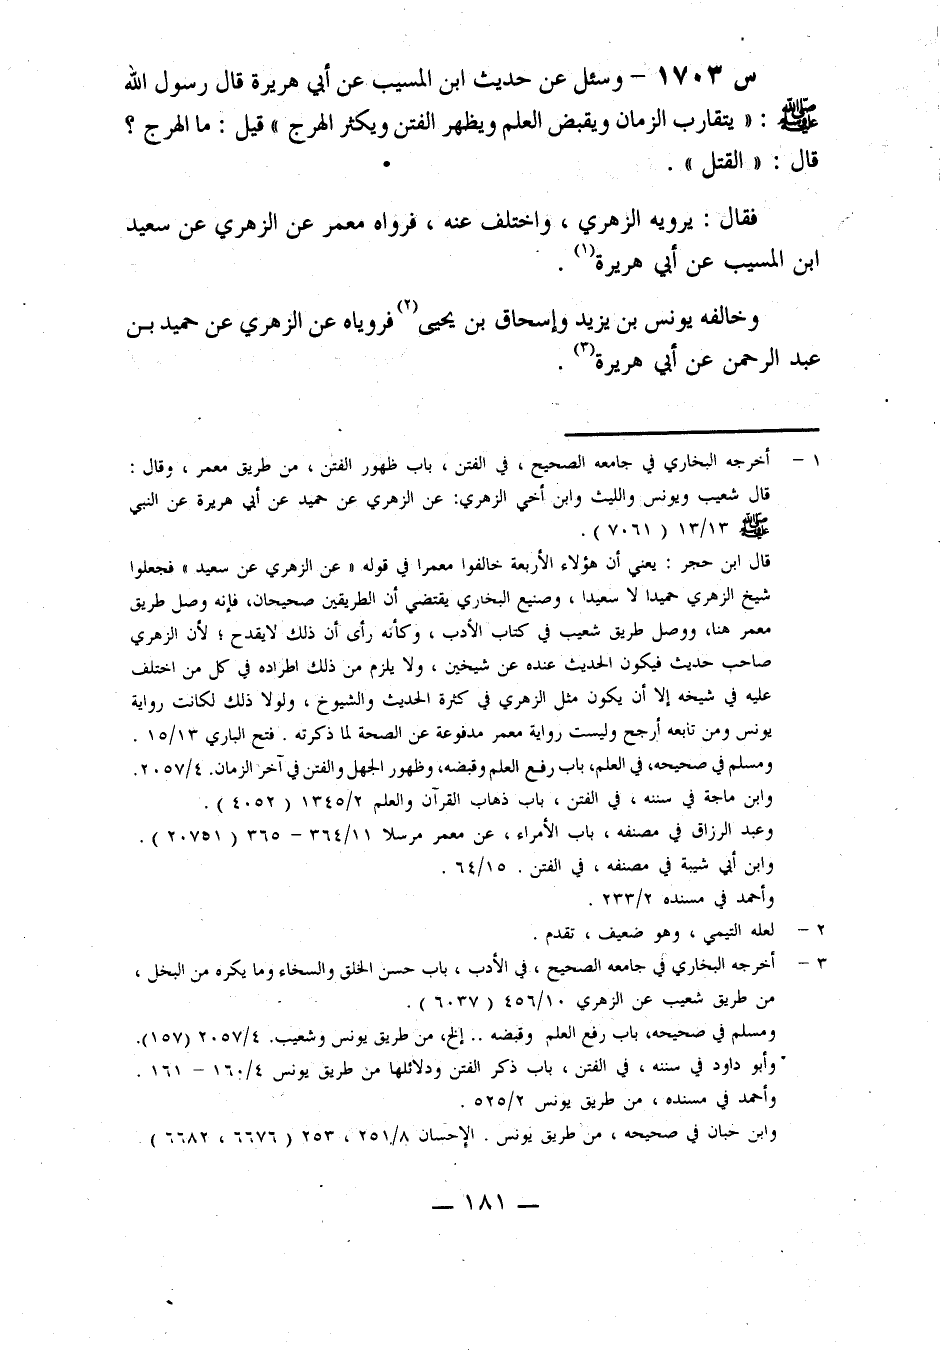 س ١٧٠٣ – وسئل عن حديث ابن المسيب عن أبي هريرة قال رسول الله
ﷺ : « يتقارب الزمان ويقبض العلم ويظهر الفتن ويكثر الهرج » قيل : ما الهرج ؟
قال : « القتل » .
فقال : يرويه الزهري ، واختلف عنه ، فرواه معمر عن الزهري عن سعيد
ابن المسيب عن أبي هريرة(١) .
وخالفه يونس بن يزيد وإسحاق بن يحيى(٢) فروياه عن الزهري عن حميد بـن
عبد الرحمن عن أبي هريرة(٣) .
١ – أخرجه البخاري في جامعه الصحيح ، في الفتن ، باب ظهور الفتن ، من طريق معمر ، وقال :
قال شعيب ويونس والليث وابن أخي الزهري: عن الزهري عن حميد عن أبي هريرة عن النبي
ﷺ ١٣/١٣ ( ٧٠٦١ ) .
قال ابن حجر : يعني أن هؤلاء الأربعة خالفوا معمرا في قوله « عن الزهري عن سعيد » فجعلوا
شيخ الزهري حميدا لا سعيدا ، وصنيع البخاري يقتضي أن الطريقين صحيحان، فإنه وصل طريق
معمر هنا، ووصل طريق شعيب في كتاب الأدب ، وكأنه رأى أن ذلك لايقدح ؛ لأن الزهري
صاحب حديث فيكون الحديث عنده عن شيخين ، ولا يلزم من ذلك اطراده في كل من اختلف
عليه في شيخه إلا أن يكون مثل الزهري في كثرة الحديث والشيوخ ، ولولا ذلك لكانت رواية
يونس ومن تابعه أرجح وليست رواية معمر مدفوعة عن الصحة لما ذكرته . فتح الباري ١٥/١٣ .
ومسلم في صحيحه، في العلم، باب رفع العلم وقبضه، وظهور الجهل والفتن في آخر الزمان. ٢٠٥٧/٤.
وابن ماجة في سننه ، في الفتن ، باب ذهاب القرآن والعلم ١٣٤٥/٢ ( ٤٠٥٢ ) .
وعبد الرزاق في مصنفه ، باب الأمراء ، عن معمر مرسلا ٣٦٤/١١ – ٣٦٥ ( ٢٠٧٥١ ) .
وابن أبي شيبة في مصنفه ، في الفتن . ٦٤/١٥ .
وأحمد في مسنده ٢٣٣/٢ .
٢ – لعله التيمي ، وهو ضعيف ، تقدم .
٣ – أخرجه البخاري في جامعه الصحيح ، في الأدب ، باب حسن الخلق والسخاء وما يكره من البخل ،
من طريق شعيب عن الزهري ٤٥٦/١٠ ( ٦٠٣٧ ) .
ومسلم في صحيحه، باب رفع العلم وقبضه .. إلخ، من طريق يونس وشعيب. ٢٠٥٧/٤ (١٥٧).
وأبو داود في سننه ، في الفتن ، باب ذكر الفتن ودلائلها من طريق يونس ١٦٠/٤ – ١٦١ .
وأحمد في مسنده ، من طريق يونس ٥٢٥/٢ .
وابن حبان في صحيحه ، من طريق يونس . الإحسان ٢٥١/٨ ، ٢٥٣ ( ٦٦٧٦ ، ٦٦٨٢ )
— ١٨١ —